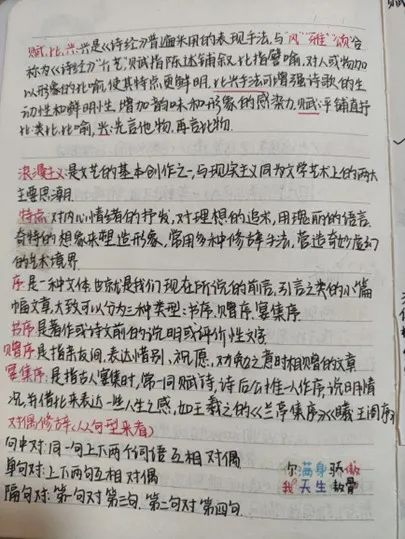 赋、比、兴:兴是《诗经》普遍采用的表现手法,与"风""雅""颂"合
称为《诗经》"六艺"赋指陈述铺叙,比指譬喻,对人或物加
以形象的比喻,使其特点更鲜明,比兴手法可增强诗歌的生
动性和鲜明性,增加韵味和形象的感染力,赋:平铺直叙
比:类比,比喻,兴:先言他物,再言此物.
浪漫主义是文艺的基本创作之一,与现实主义同为文学艺术上的两大
主要思潮
特点:对内心情绪的抒发,对理想的追求,用瑰丽的语言
奇特的想象来塑造形象,常用多种修辞手法,营造奇妙虚幻
的艺术境界
序是一种文体,也就是我们现在所说的前言,引言之类的小篇
幅文章,大致可以分为三种类型:书序,赠序,宴集序
书序是著作或诗文前的说明或评价性文字
赠序是指亲友间,表达惜别、祝愿,对勉之意时相赠的文章
宴集序:是指古人宴集时,常一同赋诗,诗后公推一人作序,说明情
况,并借此来表达一些人生之感,如王羲之的《兰亭集序》《滕王阁序》
对偶修辞(从句型来看)
句中对:同一句上下两个词语互相对偶
单句对:上下两句互相对偶
隔句对:第一句对第三句.第二句对第四句.
你满身骄傲
我天生教骨